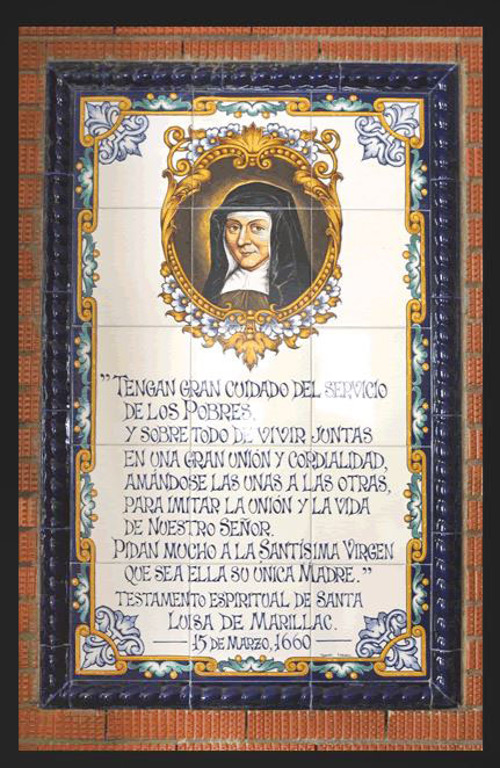 "TENGAN GRAN CUIDADO DEL SERVICIO
DE LOS POBRES.
Y SOBRE TODO DE VIVIR JUNTAS
EN UNA GRAN UNIÓN Y CORDIALIDAD,
AMÁNDOSE LAS UNAS A LAS OTRAS,
PARA IMITAR LA UNIÓN Y LA VIDA
DE NUESTRO SEÑOR.
PIDAN MUCHO A LA SANTÍSIMA VIRGEN
QUE SEA ELLA SU ÚNICA MADRE."
TESTAMENTO ESPIRITUAL DE SANTA
LUISA DE MARILLAC.
— 15 DE MARZO, 1660 —